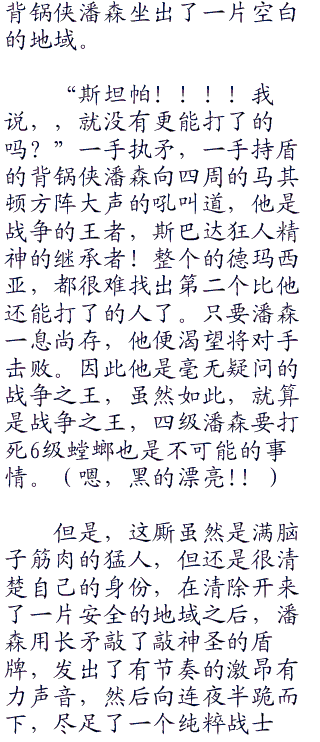 背锅侠潘森坐出了一片空白
的地域。
“斯坦帕！！！！我
说，，就没有更能打了的
吗？”一手执矛，一手持盾
的背锅侠潘森向四周的马其
顿方阵大声的吼叫道，他是
战争的王者，斯巴达狂人精
神的继承者！整个的德玛西
亚，都很难找出第二个比他
还能打了的人了。只要潘森
一息尚存，他便渴望将对手
击败。因此他是毫无疑问的
战争之王，虽然如此，就算
是战争之王，四级潘森要打
死6级螳螂也是不可能的事
情。（嗯，黑的漂亮！！）
但是，这厮虽然是满脑
子筋肉的猛人，但还是很清
楚自己的身份，在清除开来
了一片安全的地域之后，潘
森用长矛敲了敲神圣的盾
牌，发出了有节奏的激昂有
力声音，然后向连夜半跪而
下，尽足了一个纯粹战士